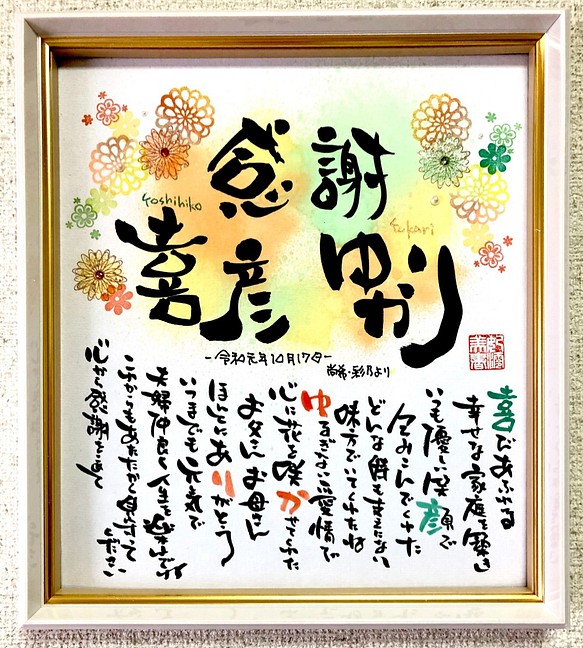 感謝
Yoshihiko
喜彦
Yukari
ゆかり
-令和元年10月17日-
尚希・彩乃より
喜びあふれる
幸せな家庭を築き
いつも優しい笑顔で
包みこんでくれた
どんな時も変わらない
味方でいてくれたね
ゆるぎない愛情で
心に花を咲かせてくれた
お父さんお母さん
ほんとにありがとう
いつまでも元気で
夫婦仲良く人生を楽しんで
これからもあたたかく見守ってください
心から感謝をこめて